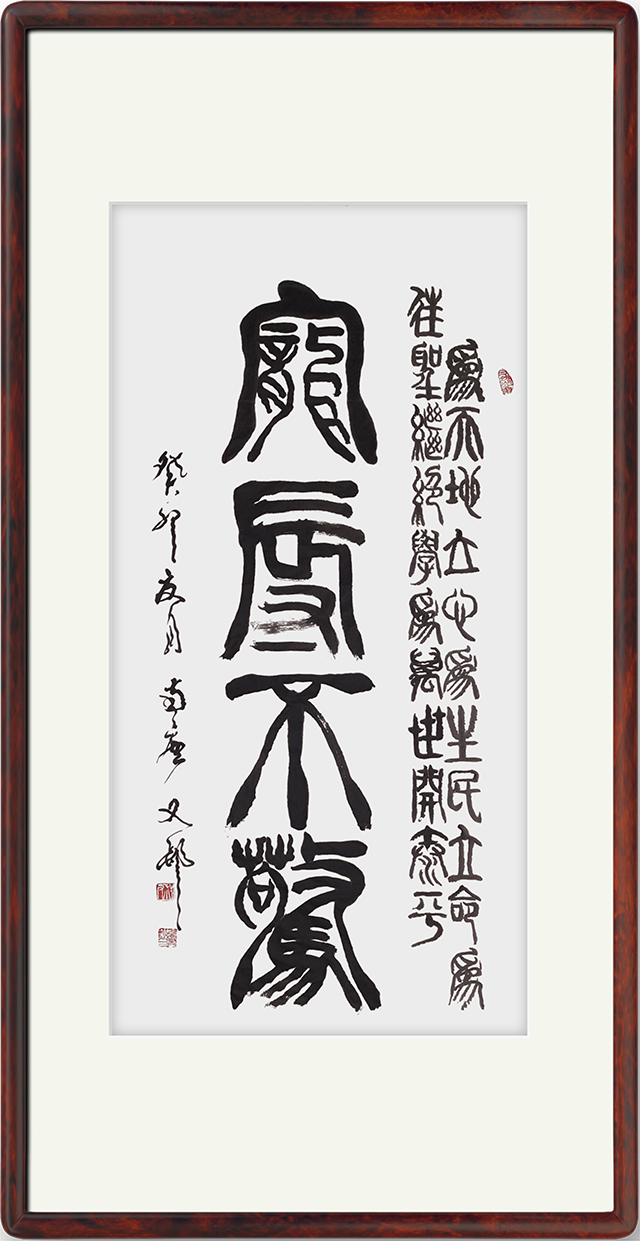 為天地立心為生民立命為
往聖繼絕學為萬世開泰平
寵辱不驚
癸卯夏月